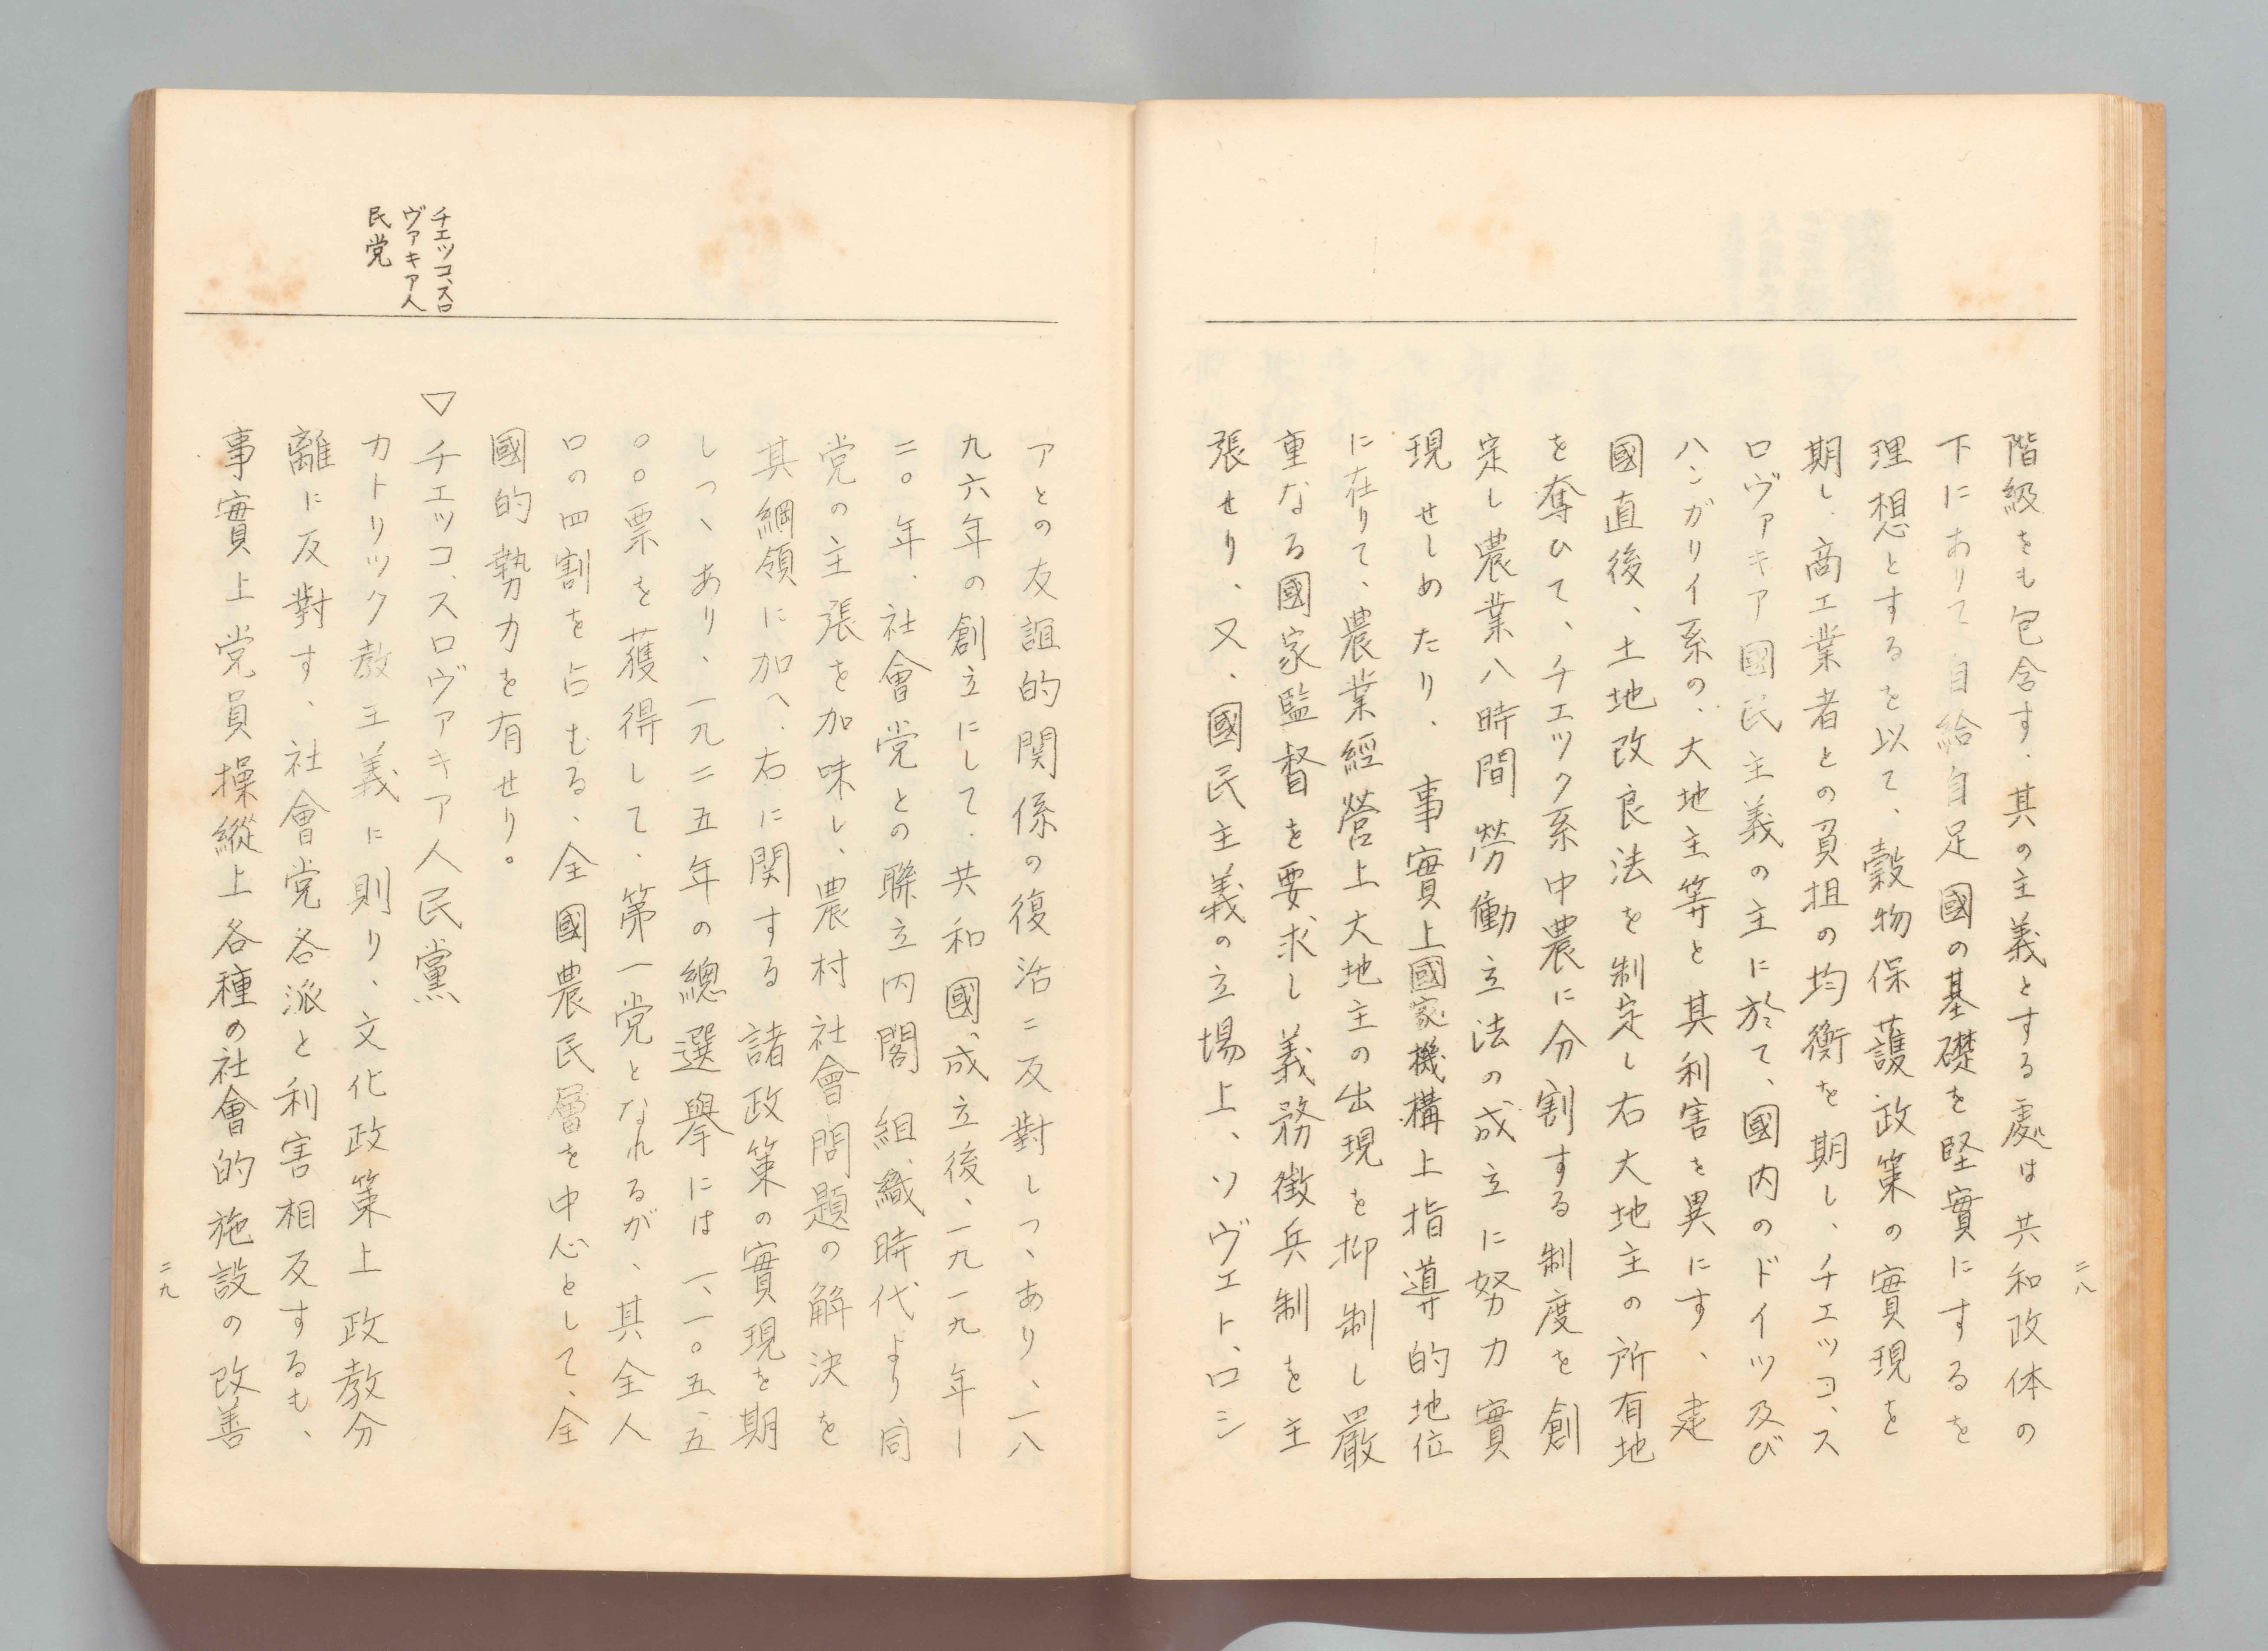 二八
階級をも包含す、其の主義とする處は共和政体の
下にありて自給自足國の基礎を堅實にするを
理想とするを以て、穀物保護政策の實現を
期し、商工業者との負担の均衡を期し、チエッコ、ス
ロヴァキア國民主義の主に於て、國内のドイツ及び
ハンガリイ系の、大地主等と其利害を異にす、建
國直後、土地改良法を制定し右大地主の所有地
を奪ひて、チエック系中農に分割する制度を創
定し農業八時間勞働立法の成立に努力實
現せしめたり、事實上國家機構上指導的地位
に在りて、農業經營上大地主の出現を抑制し嚴
重なる國家監督を要求し義務徴兵制を主
張せり、又、國民主義の立場上、ソヴエト、ロシ
アとの友誼的関係の復活ニ反對しつゝあり、一八
九六年の創立にして、共和國、成立後、一九一九年ー
二〇年、社會党との聯立内閣組織時代より同
党の主張を加味し、農村社會問題の解決を
其綱領に加へ、右に関する諸政策の實現を期
しつゝあり、一九二五年の總選擧には一、一〇五、五
〇〇票を獲得して、第一党となれるが、其全人
口の四割を占むる、全國農民層を中心として、全
國的勢力を有せり。
チエッコ、スロ
ヴァキア人
民党
▽チエッコ、スロヴァキア人民黨
カトリック教主義に則り、文化政策上政教分
離に反對す、社會党各派と利害相反するも、
事實上党員操縱上各種の社會的施設の改善
二九